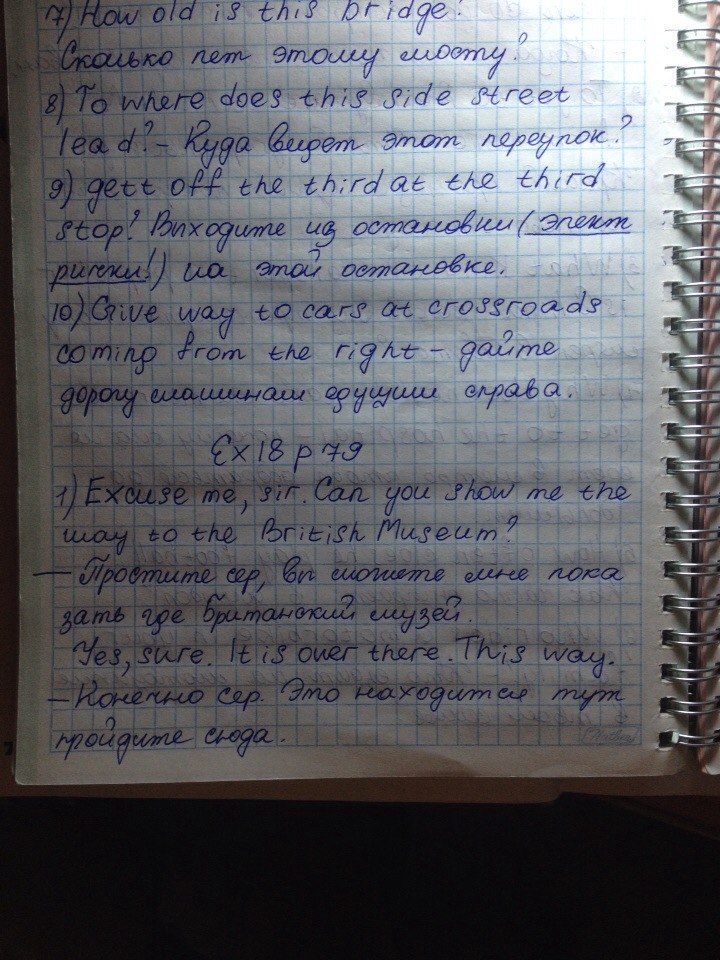 7) How old is this bridge?
Сколько лет этому мосту?
8) To where does this side street
lead? - Куда видет этот переулок?
9) gett off the third at the third
stop! Выходите из остановки (элект
рички!) на этой остановке.
10) Give way to cars at crossroads
coming from the right - дайте
дорогу машинам едущим справа.
Ex 18 p 79
1) Excuse me, sir. Can you show me the
way to the British Museum?
- Простите сер, вы сможете мне пока
зать где Британский музей.
Yes, sure. It is over there. This way.
- Конечно сер. Это находится тут
пройдите сюда.